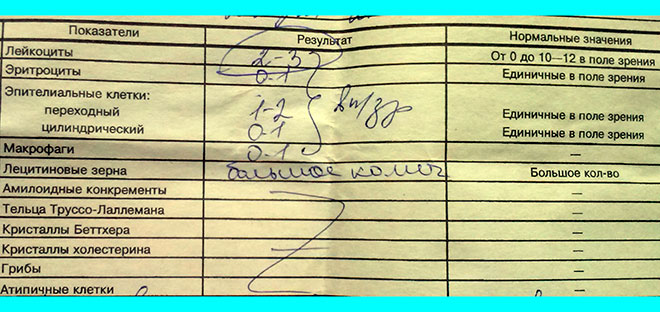 Показатели Результат Нормальные значения
Лейкоциты 2-3 От 0 до 10—12 в поле зрения
Эритроциты 0-1 Единичные в поле зрения
Эпителиальные клетки:
переходный 1-2 Единичные в поле зрения
цилиндрический 0-1 Единичные в поле зрения
Макрофаги 0-1 —
Лецитиновые зерна большое колич. Большое кол-во
Амилоидные конкременты —
Тельца Труссо-Лаллемана —
Кристаллы Беттхера —
Кристаллы холестерина — —
Грибы —
Атипичные клетки —